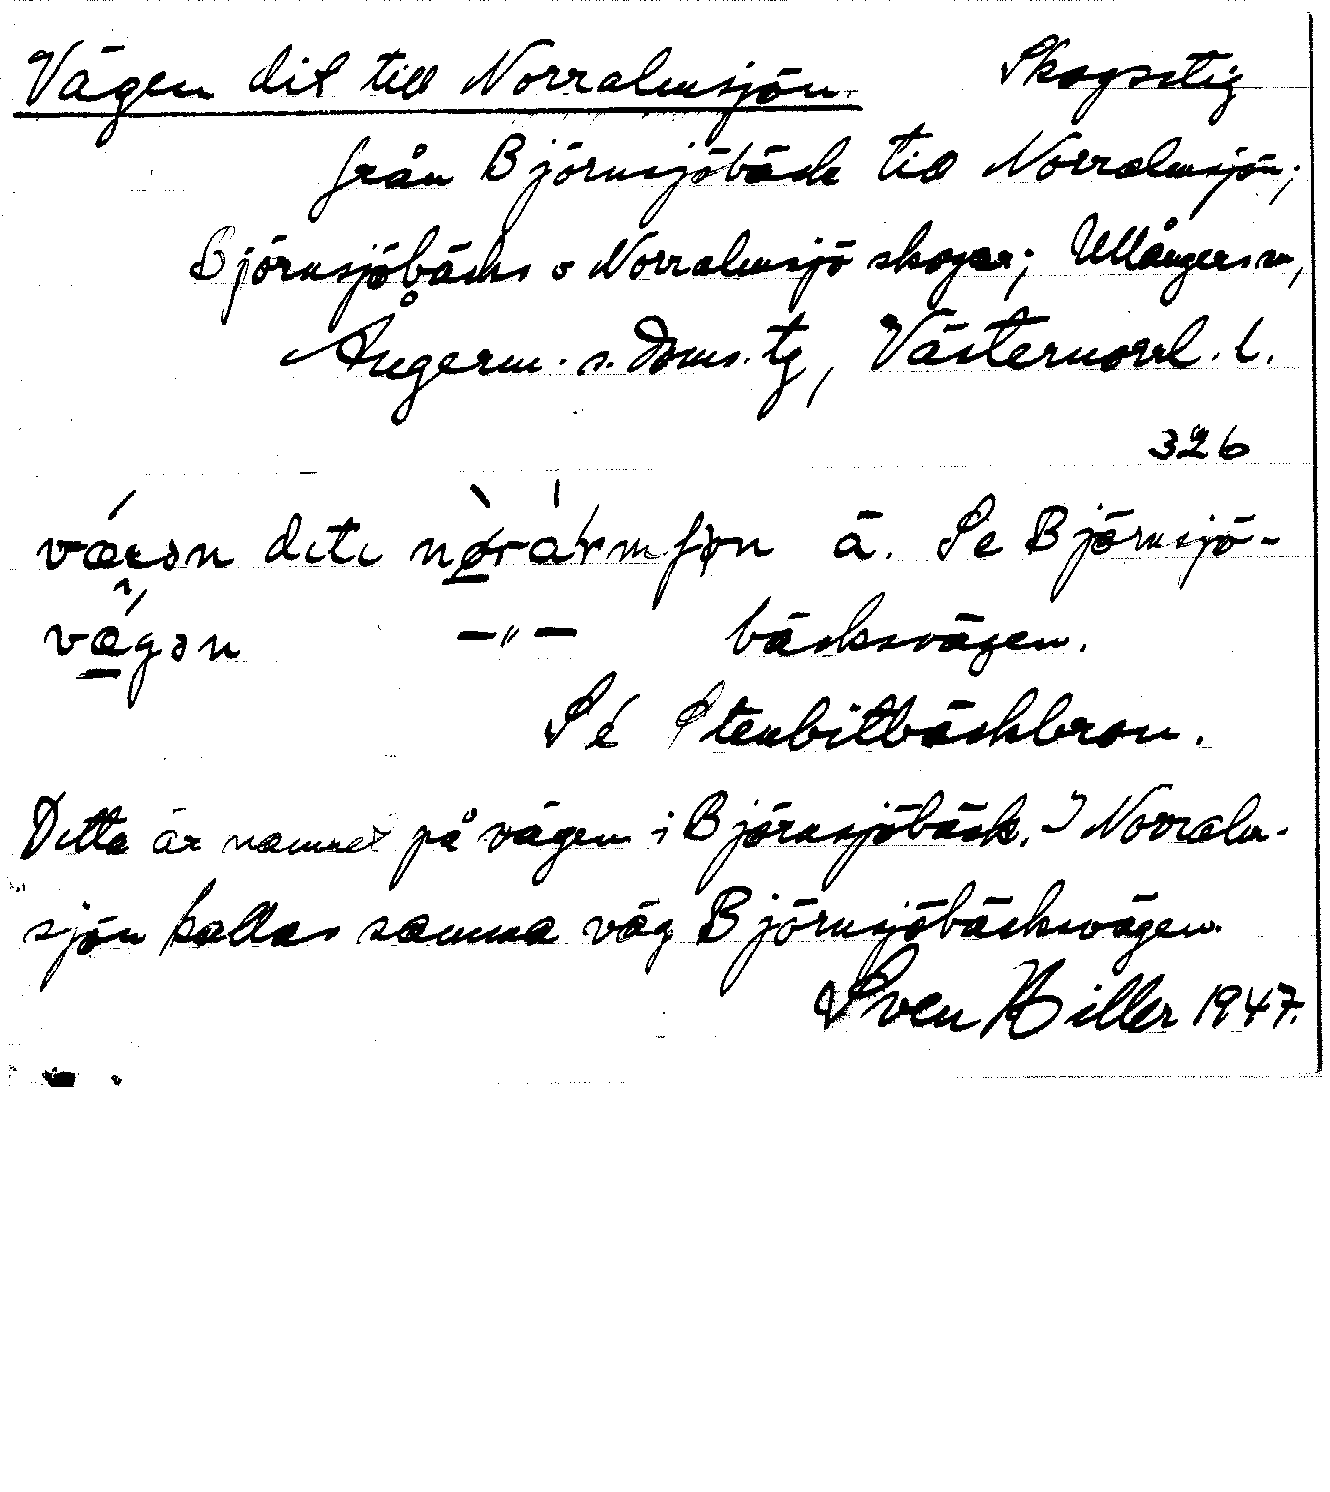 Vägen dit till Norralmsjön. Skogsstig
från Björnsjöbäck till Norralmsjön;
Björnsjöbäcks o Norralmsjö skogar; Ullångers sn,
Ångerm. s. doms. tg, Västernorrl. l.
326
diti ä. Se Björnsjö-
vägən —〃— bäcksvägen.
Se Stenbitbäckbron.
Detta är namnet på vägen i Björnsjöbäck. I Norralm-
sjön kallas samma väg Björnsjöbäcksvägen.
Sven Hiller 1947.